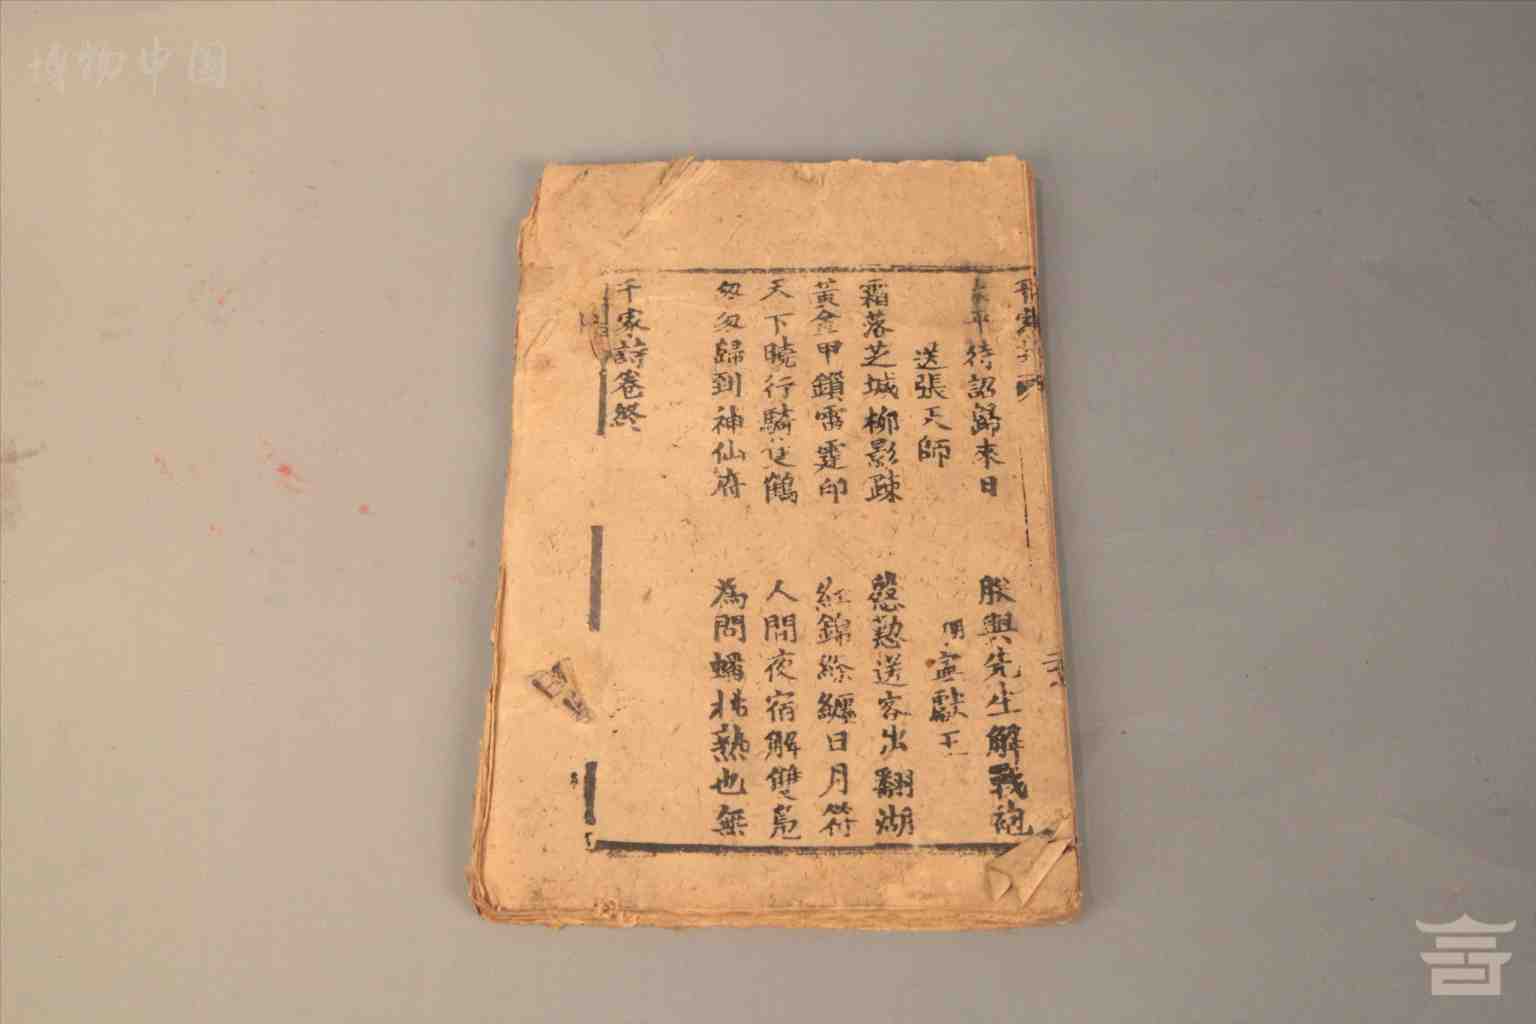 博物中国
平待詔歸來日
朕與先生解戰袍
送張天師
寧獻王
霜落芝城柳影疎
慇懃送客出鄱湖
黃金甲鎖雷霆印
紅錦絛纏日月符
天下曉行騎隻鶴
人間夜宿解雙鳧
匆匆歸到神仙府
為問蟠桃熟也無
千家詩卷終